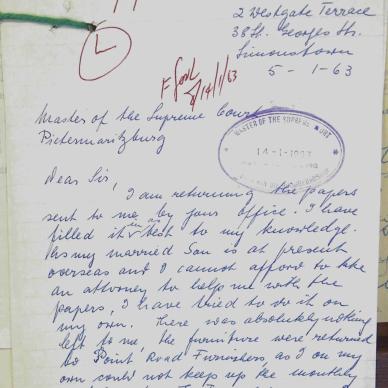 L
2 Westgate Terrace
38 St. Georges St.
Simonstown
5 - 1 - 63
14/1/63
Master of the Supreme Court
Pietermaritzburg
MASTER OF THE SUPREME
14 -1- 1963
Dear Sir,
I am returning the papers
sent to me by your office. I have
filled it in as best to my knowledge.
As my married Son is at present
overseas and I cannot afford to
an attorney to help me with the
papers, I have tried to do it on
my own. There was absolutely nothing
left to me, the furniture were returned
to Point Road Furnishers, as I on my
own could not keep up the monthly